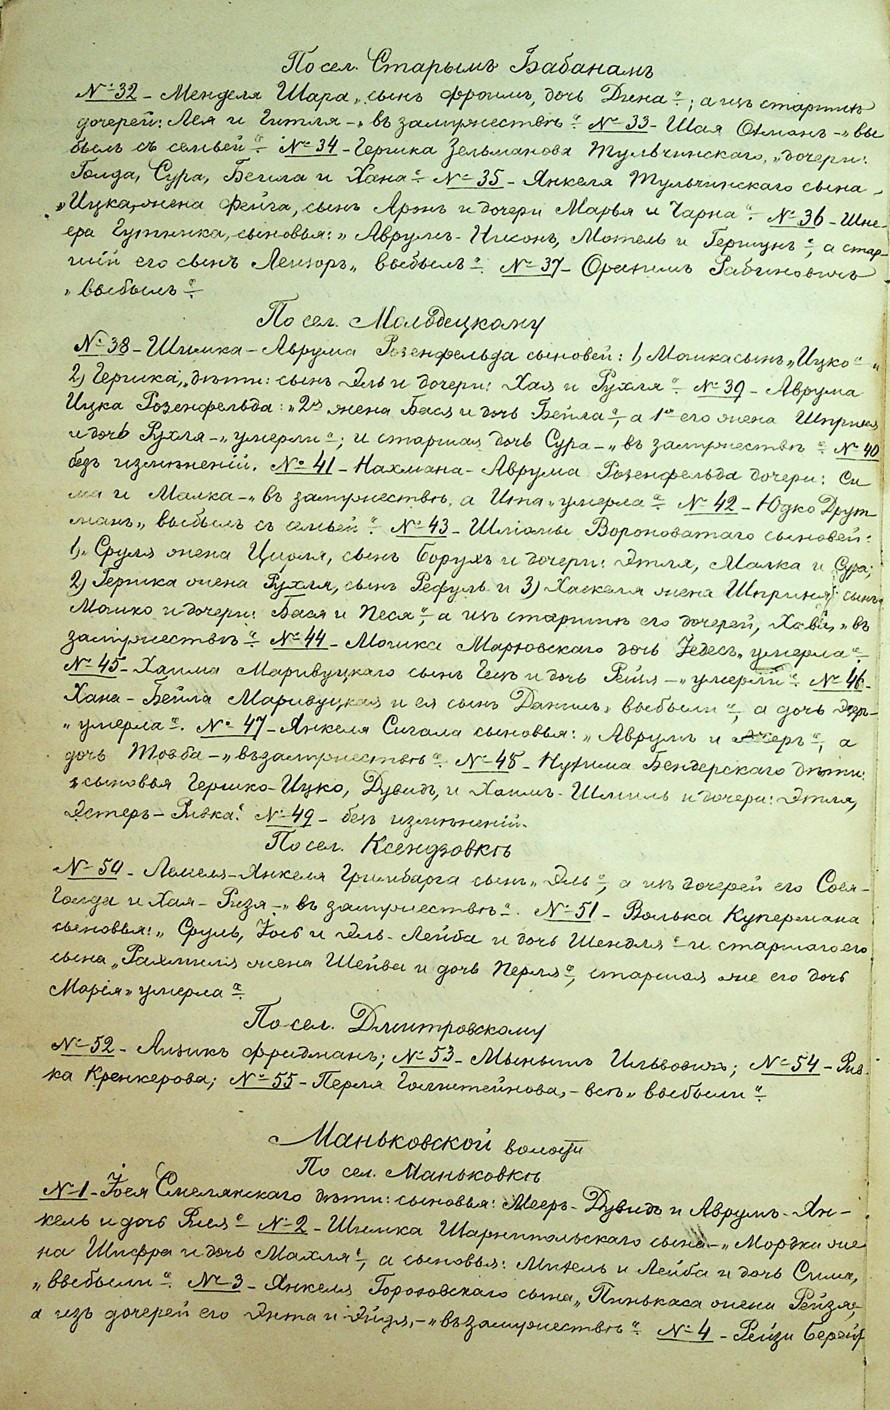 По сел. Старымъ Бабанамъ
№ 32 – Менделя Шара „сынъ Фроимъ, дочь Дина“; а изъ старшихъ
дочерей: Лея и Гитля – „въ замужествѣ“. № 33 – Шая Охманъ – „вы
былъ съ семьей“. № 34 – Гершка Зельманова Тульчинскаго, „дочери:
Голда, Сура, Бейла и Хана“. № 35 – Янкеля Тульчинскаго сына
„Ицка, жена Фейга, сынъ Аронъ и дочери Марья и Чарна“. № 36 – Шне-
ера Гутника, сыновья: „Аврумъ-Нисонъ, Мотель и Гершунъ“, а стар-
шій его сынъ Лейзоръ „выбылъ“. № 37 – Фроимъ Рабиновичъ
„выбылъ“.
По сел. Молодецкому
№ 38 – Шимка-Аврума Розенфельда сыновей: 1) Мошка сынъ „Ицко“ „
2) Гершка, „дѣти: сынъ Эль и дочери: Хая и Рухля“. № 39 – Аврума
Ицка Розенфельда: „2я жена Бася и дочь Бейла“, а 1ая его жена Шпринца
и дочь Рухля – „умерли“; и старшая дочь Сура – „въ замужествѣ“. № 40
безъ измѣненій. № 41 – Нахмана-Аврума Розенфельда дочери: Си
ма и Малка – „въ замужествѣ, а Ита „умерла“. № 42 – Юдко Друт-
манъ „выбылъ съ семьей“. № 43 – Шліомы Вороноватаго сыновей:
1) „Сруля жена Циоля, сынъ Борухъ и дочери: Этля, Малка и Сура;
2) Гершка жена Рухля, сынъ Рефуль и 3) Хаскеля жена Шпринца, сынъ
Мошко и дочери: Бася и Песя“, а изъ старшихъ его дочерей, Хава, „въ
замужествѣ“. № 44 – Мошка Марковскаго дочь Іедесъ „умерла“.
№ 45 – Хаима Маривуцкаго сынъ Гецъ и дочь Рейзя – „умерли“. № 46 –
Хана-Бейла Маривуцкая и ея сынъ Даніилъ „выбыли“, а дочь
„умерла“. № 47 – Янкеля Сигала сыновья: „Аврумъ и Ашеръ“, а
дочь Товба – „въ замужествѣ“. № 48 – Нухима Бендерскаго дѣти:
„сыновья Гершко-Ицко, Дувидъ, и Хаимъ-Шмиль и дочери: Этля,
Эстеръ-Ривка“. № 49 – безъ измѣненій.
По сел. Ксендзовкѣ
№ 50 – Лемеля-Янкеля Гринбарга сынъ „Эль“, а изъ дочерей его Сося-
Голда и Хая-Рузя – „въ замужествѣ“. № 51 – Волька Купермана
сыновья: „Сруль, Іосъ и Эль-Лейба и дочь Шендля“ и старшаго его
сына „Рахмиля жена Шейва и дочь Перля“, старшая же его дочь
Марія „умерла“.
По сел. Дмитровскому
№ 52 – Аизикъ Фридманъ; № 53 – Ильвовичъ; № 54 – Рив-
ка Кренкерова; № 55 – Перля Голштейнова, – всѣ „выбыли“.
Маньковской волости
По сел. Маньковкѣ
№ 1 – Іося Смелянскаго дѣти: сыновья: Мееръ-Дувидъ и Аврумъ-Ян-
кель и дочь Рися“. № 2 – Шимка Шарнипольскаго сына – „Мордка же
на Шифра и дочь Махля“, а сыновья: Митель и Лейба и дочь Сима,
„выбыли“. № 3 – Янкеля Гороховскаго сына „Пинькаса жена Рейзя“,
а изъ дочерей его Энта и Эйдя, – „въ замужествѣ“. № 4 – Рейзи